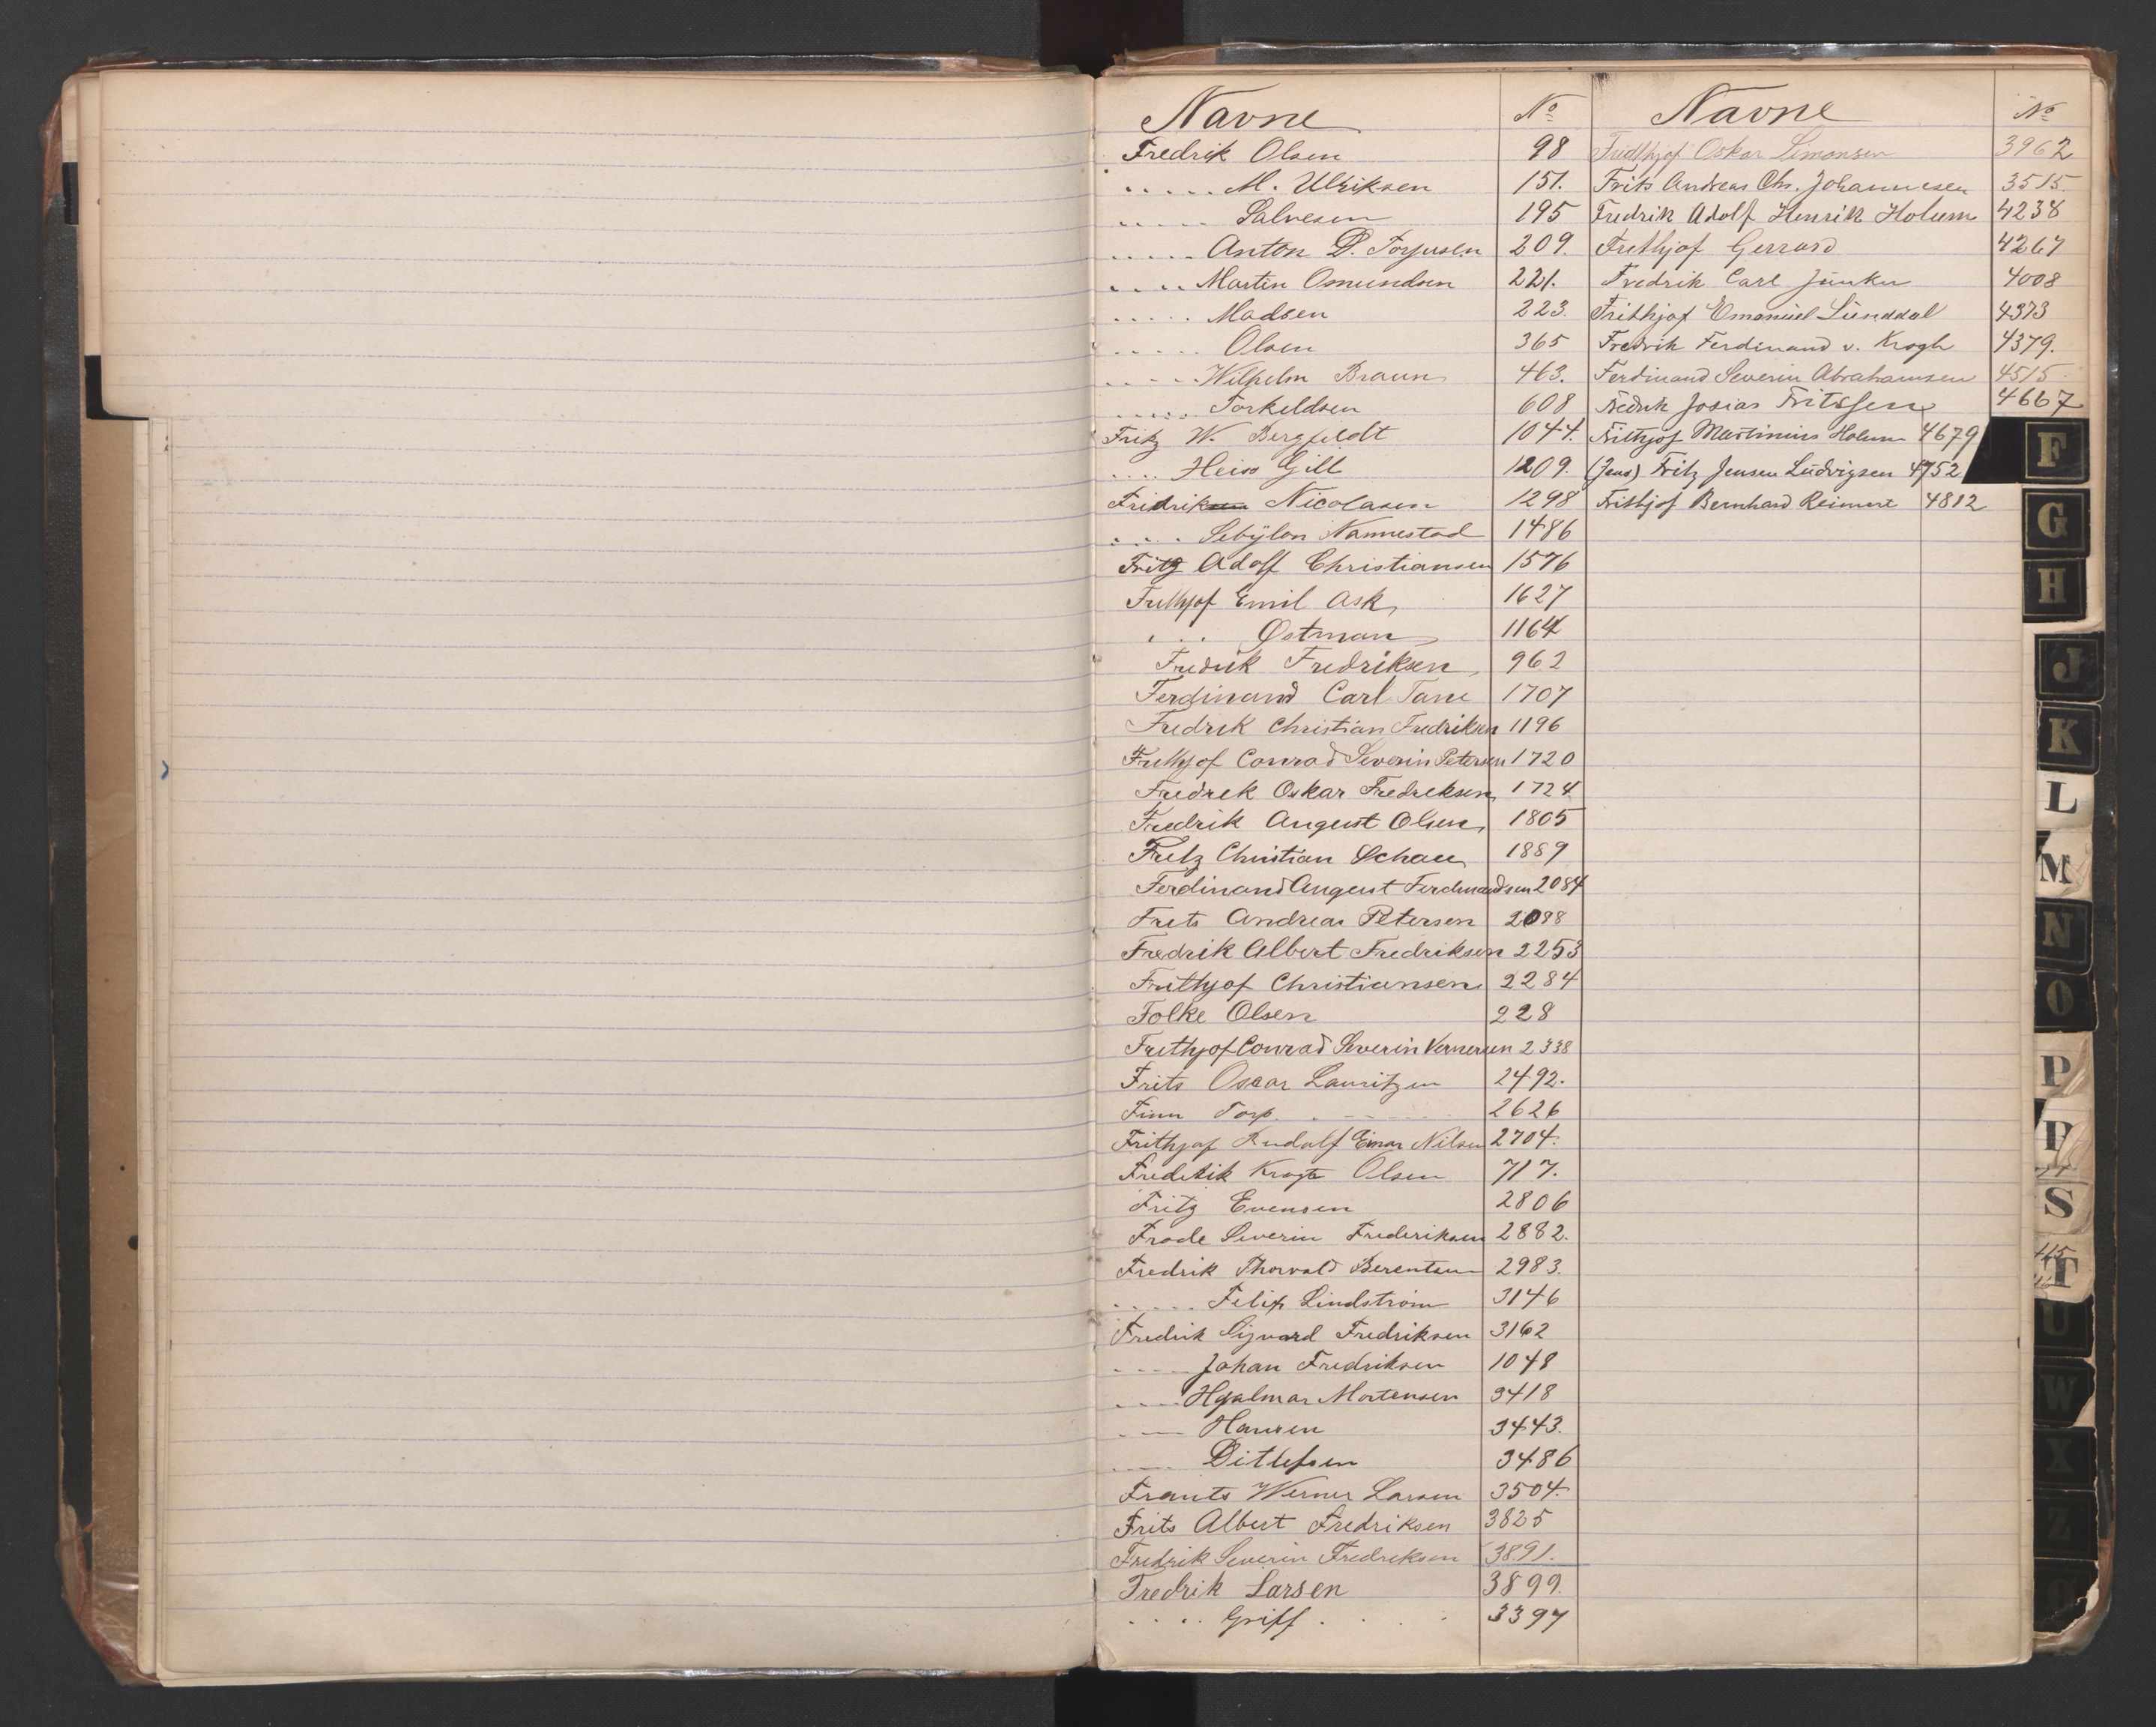 Navne No
Fredrik Olsen 98
..... M. Ulriksen 151.
..... Salvesen 195
..... Anton D. Torjusen 209.
.... Martin Osmundsen 221.
..... Madsen 223.
..... Olsen 365
..... Wilhelm Braun 463.
..... Torkeldsen 608
Fritz W. Bergfeldt 1044.
.... Heiss Gill 1209.
Fridrik Nicolasen 1298
.... Sebÿlon Nannestad 1486
Fritz Adolf Christiansen 1576
Frithjof Emil Ask 1627
... Østman 1164
Fredrik Fredriksen 962
Ferdinand Carl Tane 1707
Fredrik Christian Fredriksen 1196
Frithjof Conrad Severin Petersen 1720
Fredrek Oskar Fredreksen 1724
Fredrik August Olsen 1805
Fritz Christian Schau 1889
Ferdinand August Ferdinandsen 2084
Frits Andreas Petersen 2098
Fredrik Albert Fredriksen 2253
Frithjof Christiansen 2284
Folke Olsen 228
Frithjof Conrad Severin Vernersen 2338
Frits Oscar Lauritzen 2492.
Finn Torp 2626
Frithjof Rudolf Einar Nilsen 2704.
Fredrik Krogh Olsen 717.
Fritz Evensen 2806
Frode Severin Frederiksen 2882.
Fredrik Thorvald Berentsen 2983.
..... Felix Lindstrøm 3146
Fredrik Sigvard Fredriksen 3162
.... Johan Fredriksen 1048
.... Hjalmar Mortensen 3418
.... Hansen 3443.
.... Ditlefsen 3486
Frants Werner Larsen 3504.
Frits Albert Fredriksen 3825
Fredrik Severin Fredreksen 3891.
Fredrik Larsen 3899.
.... Griff 3397
Navne No
Fridthjof Oskar Simonsen 3962
Frits Andreas Chr. Johannesen 3515.
Fredrik Adolf Henrik Holum 4238
Frithjof Gerrard 4267
Fredrik Carl Junker 4008
Frithjof Emanuel Lunddal 4373
Fredrik Ferdinand v. Krogh 4379.
Ferdinand Severin Abrahamsen 4515
Fredrik Josias Fritssen 4667
Frithjof Martinius Holum 4679
(Jens) Fritz Jensen Ludvigsen 4752
Frithjof Bernhard Reimert 4812
F
G
H
J
K
L
M
N
O
P
S
T
U
W
X
Z